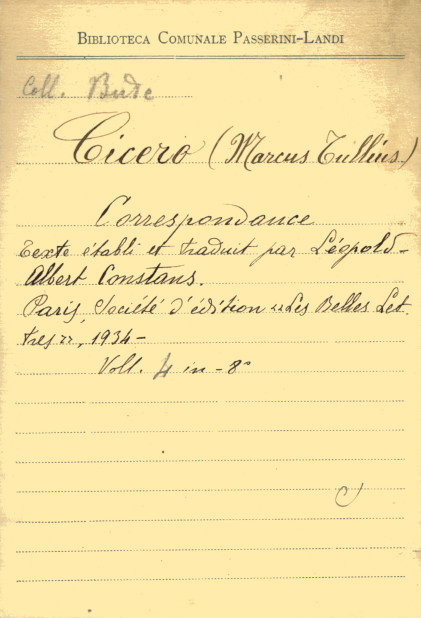 BIBLIOTECA COMUNALE PASSERINI-LANDI
Coll. Bude
Cicero (Marcus Tullius)
Correspondance
Texte établi et traduit par Léopold-
Albert Constans.
Paris, Société d'édition "Les Belles Let
tres", 1934-
Voll. 4 in-8°